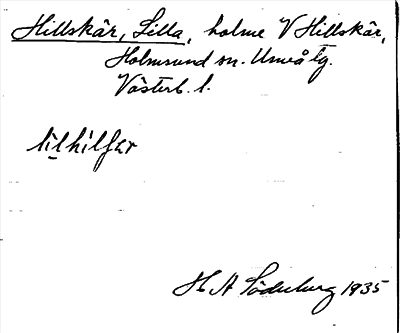 Hillskär, Lilla, holme V Hillskär,
Holmsund sn. Umeå tg.
Västerb. l.
lilhilfär
H A Söderberg 1935